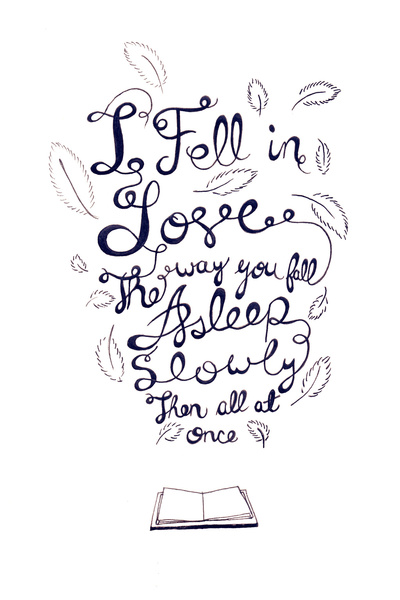 I Fell in
Love
The way you fall
Asleep
Slowly
Then all at
once